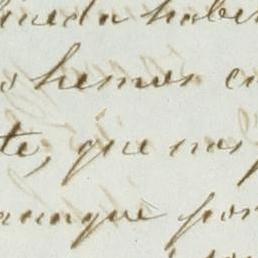 haber
hemos
te, que nos
aunque por